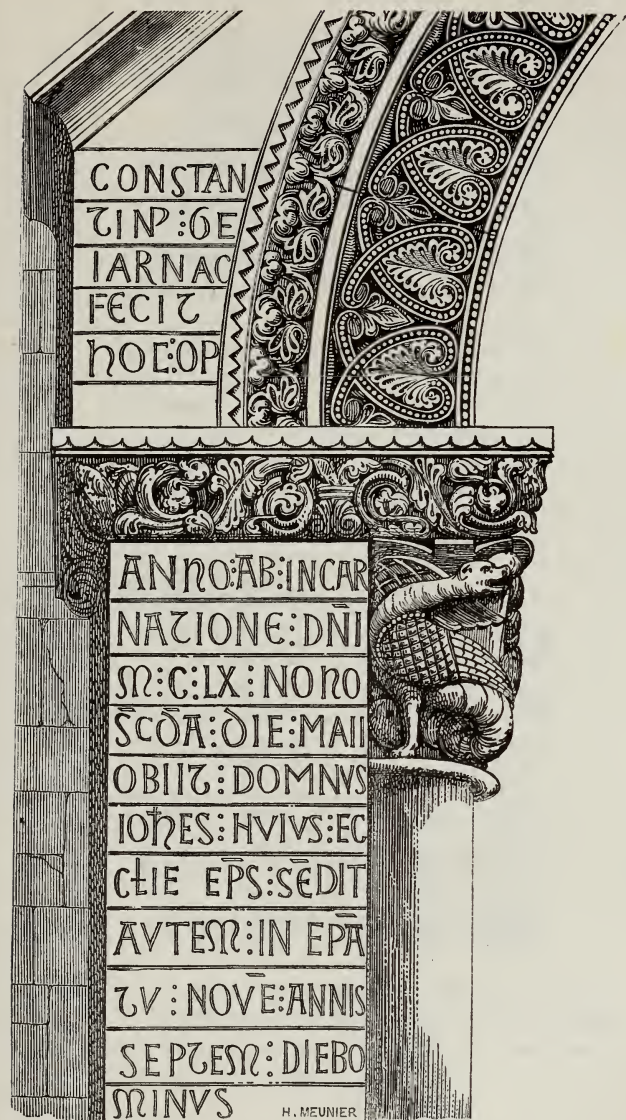 CONSTAN
TINP : DE
IARNAC
FECIT
hOC : OP
ANNO : AB : INCAR
NATIONE : DN̄I
M : C : LX : NONO
S̄CD̄A : DIE : MAII
OBIIT : DOMNVS
IOħES : HVIVS : EC
CŁIE EP̄S : SĒDIT
AVTEM : IN EPĀ
TV : NOVĒ : ANNIS
SEPTEM : DIEBO
MINVS
H. MEUNIER